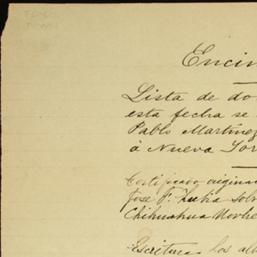 Encin
Lista de do
esta fecha se
Pablo Martinez
á Nueva Yor
Certificado origina
Jose F. Zubia sob
Chihuahua Novbe
Escrituras los al